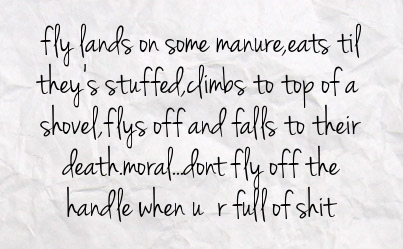 fly lands on some manure,eats til
they's stuffed,climbs to top of a
shovel,flys off and falls to their
death.moral...dont fly off the
handle when u r full of shit